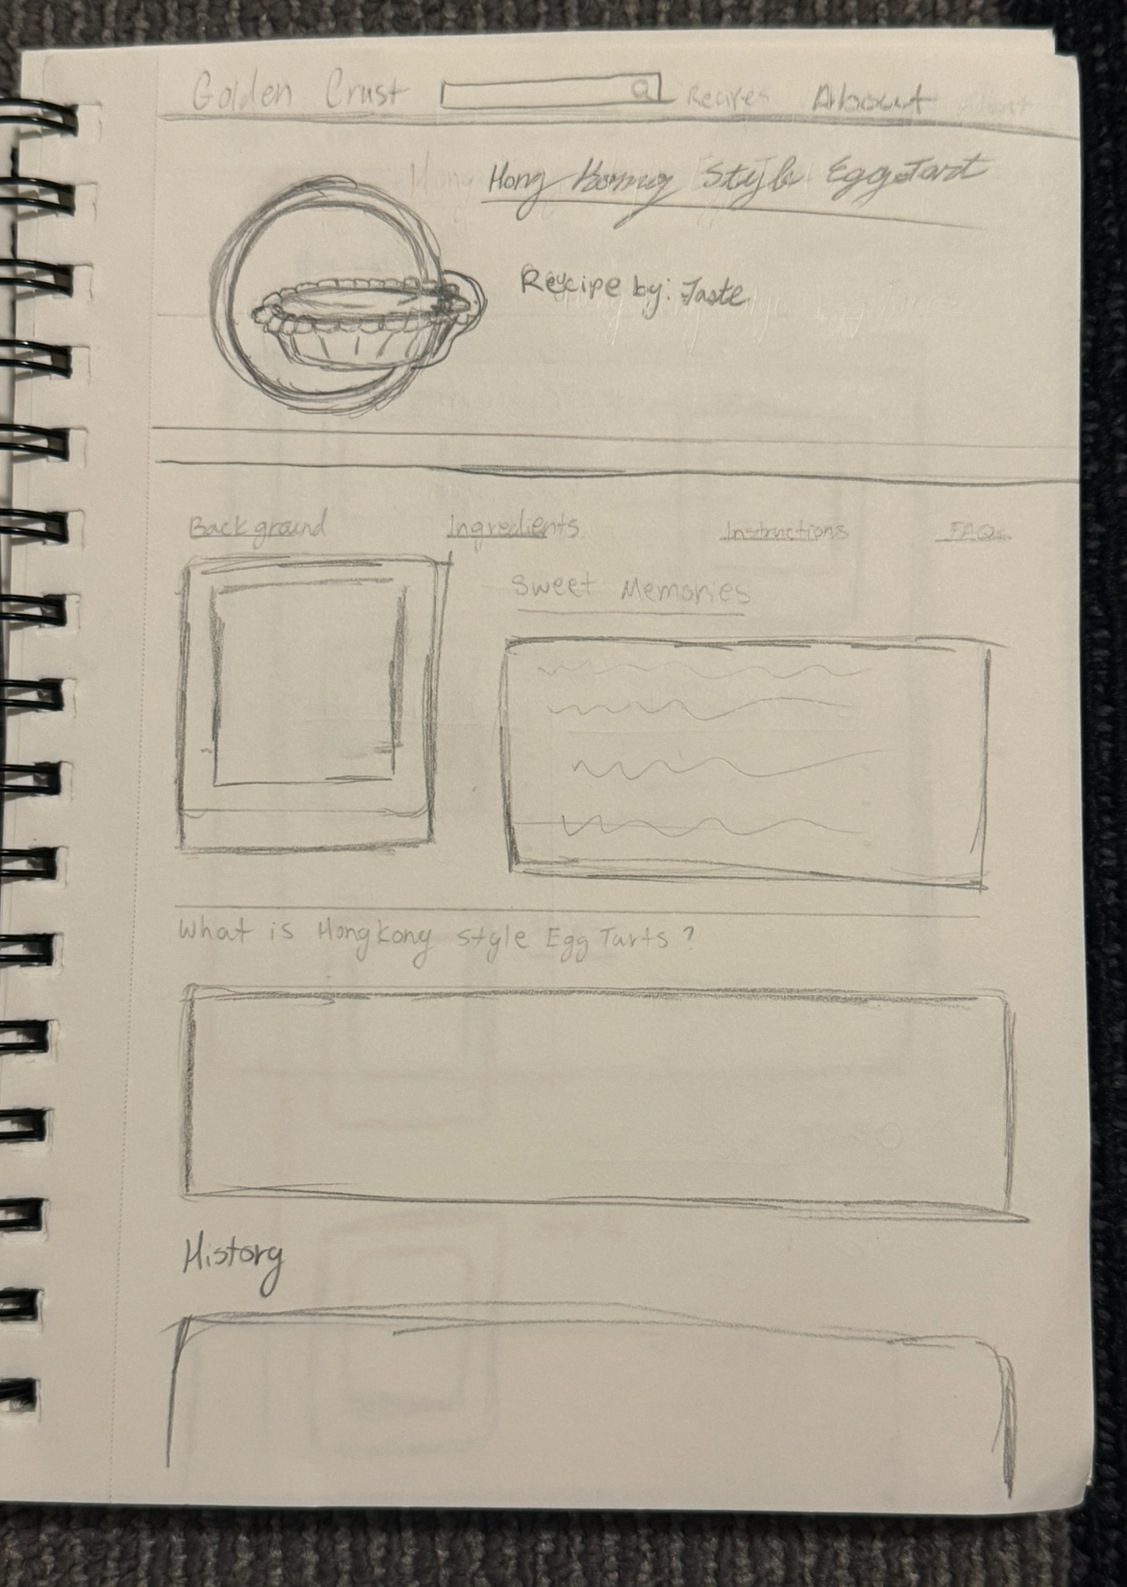 Golden Crust Recipes About
Hong Kong Style Egg Tart
Recipe by: Taste
Background Ingredients Instructions FAQs
Sweet Memories
What is Hongkong Style Egg Tarts?
History